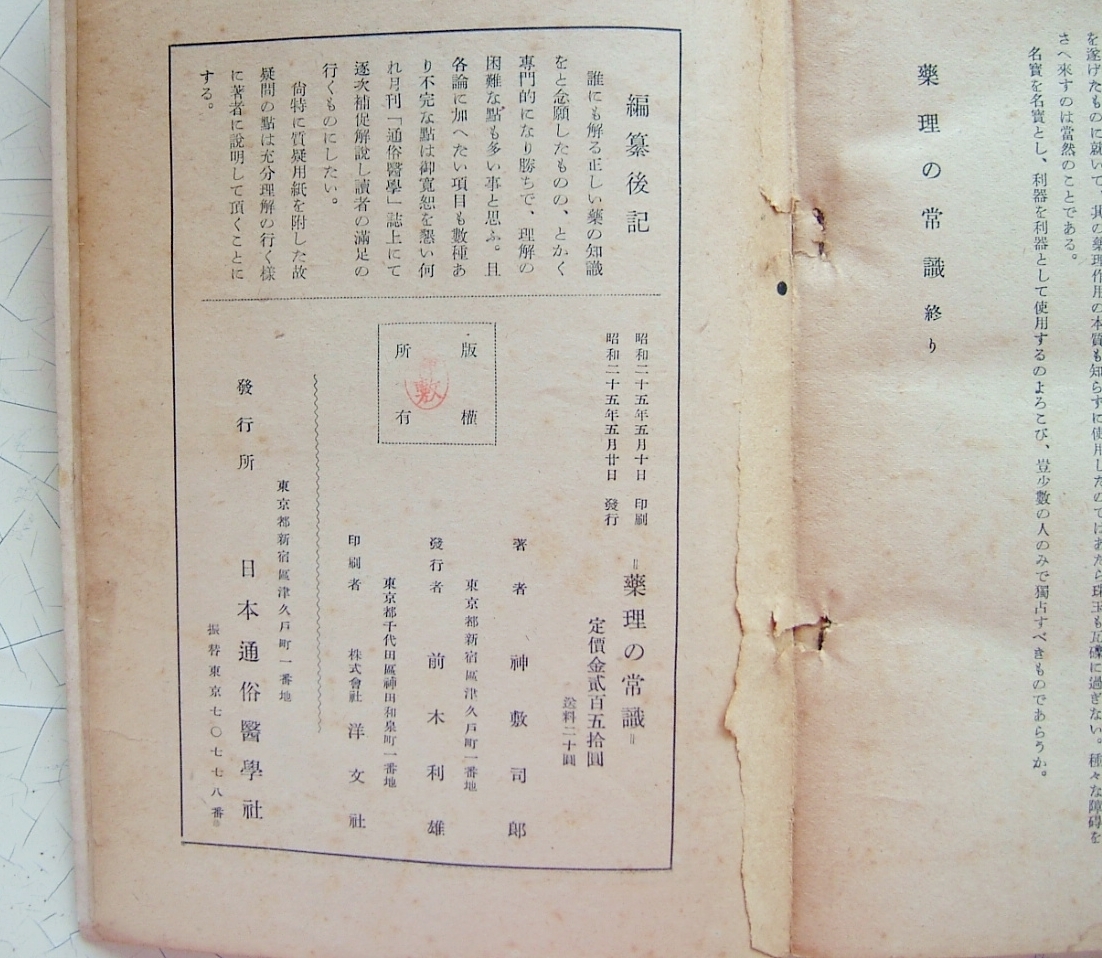 を遂げたものに就いて、其の藥理作用の本質も知らずに使用したのではあたら珠玉も瓦礫に過ぎない。種々な障碍を
さへ来すのは當然のことである。
名寶を名寶とし、利器を利器として使用するのよろこび、豈少數の人のみで獨占すべきものであらうか。
藥理の常識 終り
編纂後記
誰にも解る正しい藥の知識
をと念願したものの、とかく
專門的になり勝ちで、理解の
困難な點も多い事と思ふ。且
各論に加へたい項目も數種あ
り不完な點は御寬恕を懇い何
れ月刊「通俗醫學」誌上にて
逐次補促解說し讀者の滿足の
行くものにしたい。
尙特に質疑用紙を附した故
疑問の點は充分理解の行く樣
に著者に說明して頂くことに
する。
昭和二十五年五月十日 印刷
昭和二十五年五月廿日 發行
版權
所有
敷
=藥理の常識=
定價金貳百五拾圓
送料二十圓
著者 神敷司郎
東京都新宿區津久戶町一番地
發行者 前木利雄
東京都千代田區神田和泉町一番地
印刷者 株式會社 洋文社
東京都新宿區津久戶町一番地
發行所 日本通俗醫學社
振替東京七〇七七八番